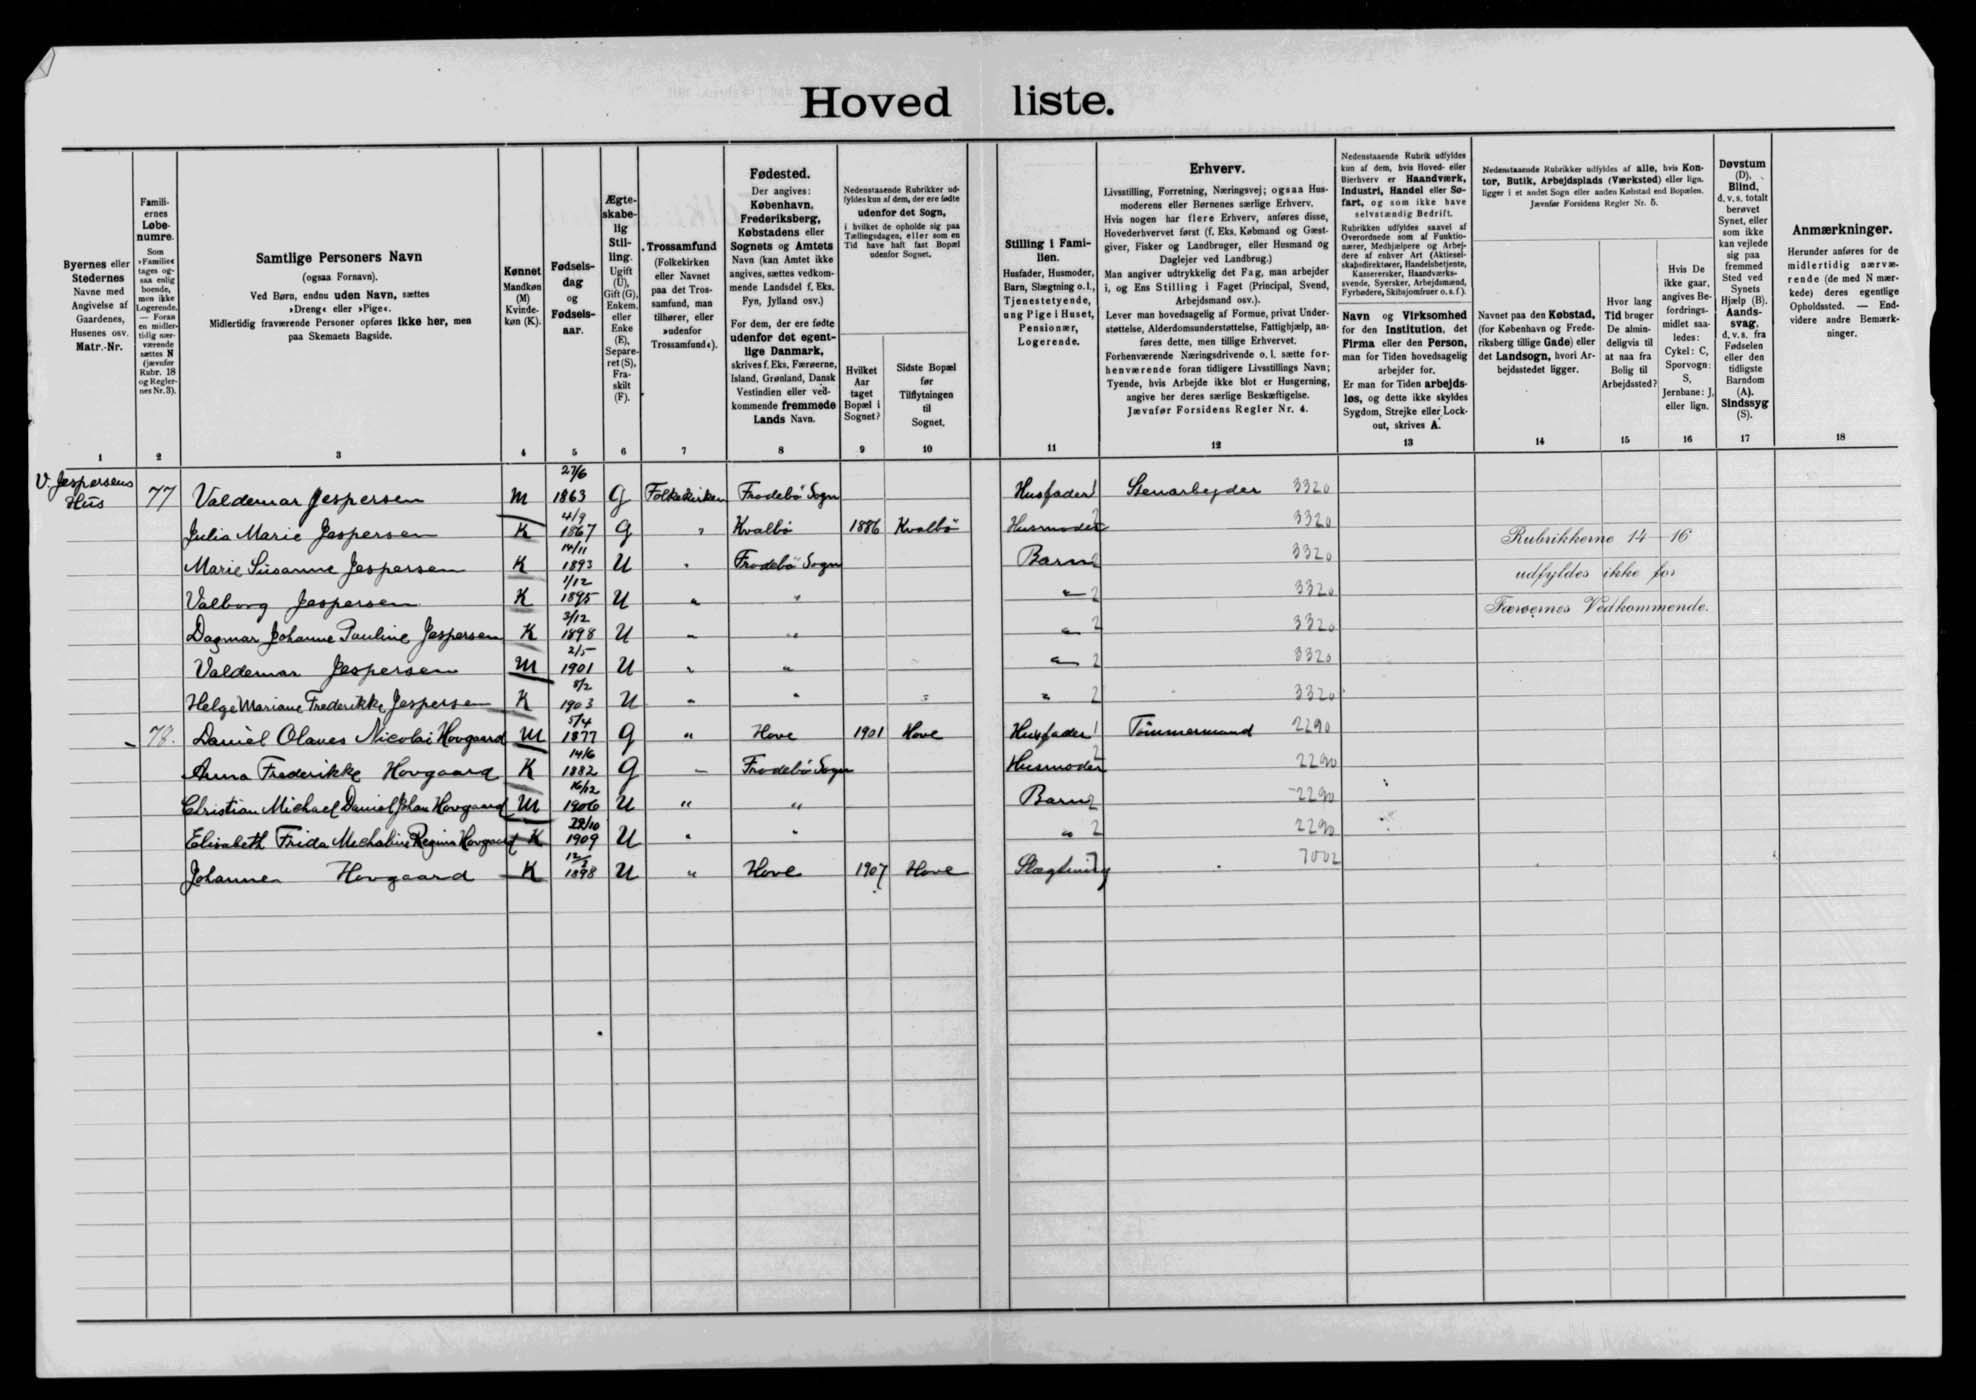 Hovedliste.
Byernes eller Stedernes Navne med Angivelse af Gaardenes, Husenes osv. Matr.-Nr.
Familiernes Løbenumre.
Som »Familie« tages ogsaa enlig boende, men ikke Logerende. — Foran en midlertidig nærværende sættes N (jævnfør Rubr. 18 og Reglernes Nr. 3).
Samtlige Personers Navn
(ogsaa Fornavn).
Ved Børn, endnu uden Navn, sættes »Dreng« eller »Pige«.
Midlertidig fraværende Personer opføres ikke her, men paa Skemaets Bagside.
Kønnet Mandkøn (M) Kvindekøn (K).
Fødselsdag og Fødselsaar.
Ægteskabelig Stilling. Ugift (U), Gift (G), Enkem. eller Enke (E), Separeret (S), Fraskilt (F).
Trossamfund (Folkekirken eller Navnet paa det Trossamfund, man tilhører, eller »udenfor Trossamfund«).
Fødested.
Der angives: København, Frederiksberg, Købstadens eller Sognets og Amtets Navn (kan Amtet ikke angives, sættes vedkommende Landsdel f. Eks. Fyn, Jylland osv.)
For dem, der ere fødte udenfor det egentlige Danmark, skrives f. Eks. Færøerne, Island, Grønland, Dansk Vestindien eller vedkommende fremmede Lands Navn.
Nedenstaaende Rubrikker udfyldes kun af dem, der ere fødte udenfor det Sogn, i hvilket de opholde sig paa Tællingsdagen, eller som en Tid have haft fast Bopæl udenfor Sognet.
Hvilket Aar taget Bopæl i Sognet?
Sidste Bopæl før Tilflytningen til Sognet.
Stilling i Familien.
Husfader, Husmoder, Barn, Slægtning o. l., Tjenestetyende, ung Pige i Huset, Pensionær, Logerende.
Erhverv.
Livsstilling, Forretning, Næringsvej; ogsaa Husmoderens eller Børnenes særlige Erhverv.
Hvis nogen har flere Erhverv, anføres disse, Hovederhvervet først (f. Eks. Købmand og Gæstgiver, Fisker og Landbruger, eller Husmand og Daglejer ved Landbrug.)
Man angiver udtrykkelig det Fag, man arbejder i, og Ens Stilling i Faget (Principal, Svend, Arbejdsmand osv.).
Lever man hovedsagelig af Formue, privat Understøttelse, Alderdomsunderstøttelse, Fattighjælp, anføres dette, men tillige Erhvervet.
Forhenværende Næringsdrivende o. l. sætte forhenværende foran tidligere Livsstillings Navn; Tyende, hvis Arbejde ikke blot er Husgerning, angive her deres særlige Beskæftigelse.
Jævnfør Forsidens Regler Nr. 4.
Nedenstaaende Rubrik udfyldes kun af dem, hvis Hoved- eller Bierhverv er Haandværk, Industri, Handel eller Søfart, og som ikke have selvstændig Bedrift.
Rubrikken udfyldes saavel af Overordnede som af Funktionærer, Medhjælpere og Arbejdere af enhver Art (Aktieselskabsdirektører, Handelsbetjente, Kassererske, Haandværkssvende, Syersker, Arbejdsmænd, Fyrbødere, Skibsjomfruer o. s. f.).
Navn og Virksomhed for den Institution, det Firma eller den Person, man for Tiden hovedsagelig arbejder for.
Er man for Tiden arbejdsløs, og dette ikke skyldes Sygdom, Strejke eller Lockout, skrives A.
Nedenstaaende Rubrikker udfyldes af alle, hvis Kontor, Butik, Arbejdsplads (Værksted) eller lign. ligger i et andet Sogn eller anden Købstad end Bopælen. Jævnfør Forsidens Regler Nr. 5.
Navnet paa den Købstad, (for København og Frederiksberg tillige Gade) eller det Landsogn, hvori Arbejdsstedet ligger.
Hvor lang Tid bruger De almindeligvis til at naa fra Bolig til Arbejdssted?
Hvis De ikke gaar, angives Befordringsmidlet saaledes: Cykel: C, Sporvogn: S, Jernbane: J, eller lign.
Døvstum (D), Blind, d. v. s. totalt berøvet Synet, eller som ikke kan vejlede sig paa fremmed Sted ved Synets Hjælp (B). Aandssvag, d. v. s. fra Fødselen eller den tidligste Barndom (A). Sindssyg (S).
Anmærkninger.
Herunder anføres for de midlertidig nærværende (de med N mærkede) deres egentlige Opholdssted. — Endvidere andre Bemærkninger.
1 2 3 4 5 6 7 8 9 10 11 12 13 14 15 16 17 18
V. Jespersens Hus 77 Valdemar Jespersen M 27/6 1863 G Folkekirken Frodebö Sogn Husfader 1 Stenarbejder 3320
Julia Marie Jespersen K 4/9 1867 G " Kvalbö 1886 Kvalbö Husmoder 2 3320
Marie Susanne Jespersen K 14/11 1893 U " Frodebö Sogn Barn 2 3320
Valborg Jespersen K 1/12 1895 U " " " 2 3320
Dagmar Johanne Pauline Jespersen K 3/12 1898 U " " " 2 3320
Valdemar Jespersen M 2/5 1901 U " " " 2 3320
Helge Mariane Frederikke Jespersen K 8/2 1903 U " " " 2 3320
Rubrikkerne 14-16
udfyldes ikke for
Færøernes Vedkommende.
78. Daniel Olaves Nicolai Hovgaard M 5/4 1877 G " Hove 1901 Hove Husfader 1 Tömmermand 2290
Anna Frederikke Hovgaard K 14/6 1882 G " Frodebö Sogn Husmoder 2 2290
Christian Michael Daniel Johan Hovgaard M 16/12 1906 U " " Barn 2 2290
Elisabeth Frida Mechaline Regina Hovgaard K 22/10 1909 U " " " 2 2290
Johanne Hovgaard K 1898 U " Hove 1907 Hove Slægtning 7002